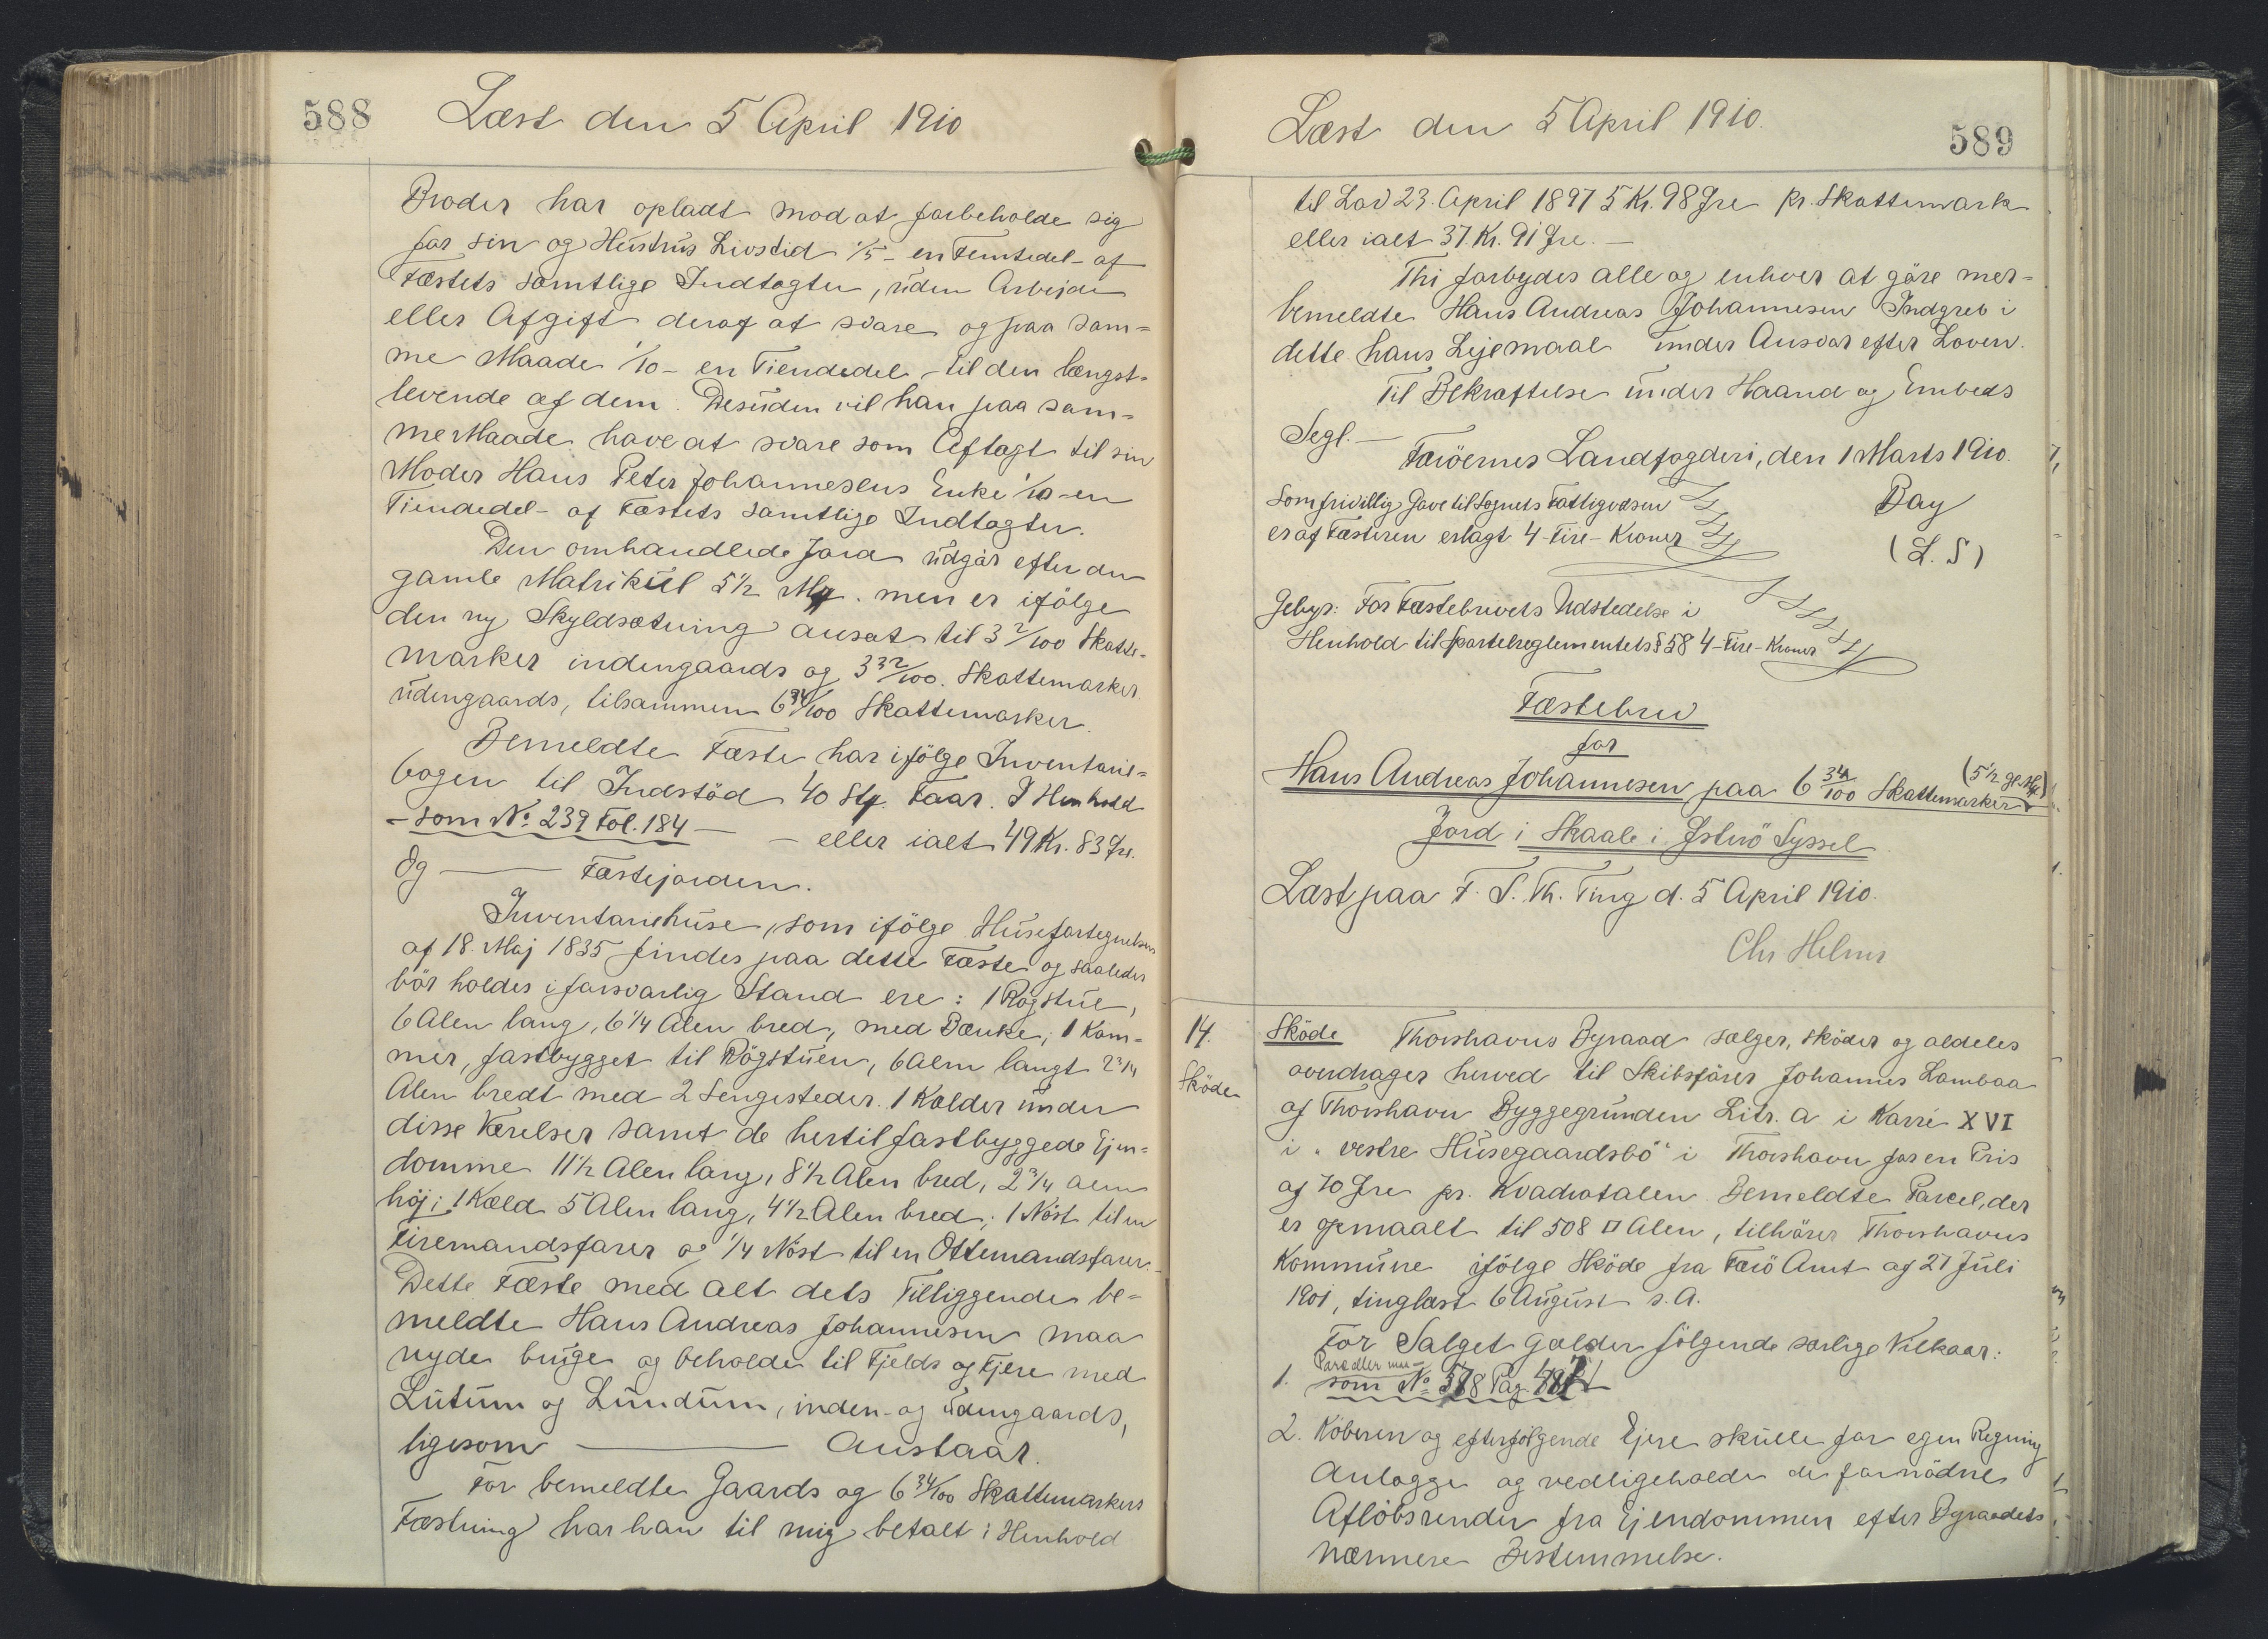 588
Læst den 5 April 1910
Broder har opladt mod at forbeholde sig
for sin og Hustrus Livstid 1/5 - en Femtedel - af
Fæstets samtlige Indtægter, uden Arbejde
eller Afgift deraf at svare og paa sam=
me Maade 1/10 - en Tiendedel - til den længst-
levende af dem. Desuden vil han paa sam=
me Maade have at svare som Aftægt til sin
Moder Hans Peter Johannesens Enke 1/10 - en
Tiendedel - af Fæstets samtlige Indtægter.
Den omhandlede Jord udgør efter den
gamle Matrikul 5 1/2 Mk. men er ifölge
den ny Skyldsætning ansat til 3 2/100 Skatte-
marker indengaards og 3 32/100. Skattemarker
udengaards, tilsammen 6 34/100 Skattemarker.
Bemeldte Fæste har ifölge Inventarie=
bogen til Indstöd 40 Stk. Faar. I Henhold
- som No. 239 Fol. 184 — — eller ialt 49 Kr. 83 Øre.
Og — Fæstejorden.
Inventariehuse, som ifölge Husefortegnelsen
af 18. Maj 1835 findes paa dette Fæste og saaledes
bör holdes i forsvarlig Stand ere: 1 Rögstue,
6 Alen lang, 6 1/4 Alen bred, med Bænke; 1 Kam=
mer, fastbygget til Rögstuen, 6 Alen langt 2 3/4
Alen bredt med 2 Sengesteder. 1 Kælder under
disse Værelser samt de hertil fastbyggede Ejen=
domme 11 1/2 Alen lang, 8 1/2 Alen bred, 2 3/4 Alen
höj; 1 Kæld 5 Alen lang, 4 1/2 Alen bred; 1 Nöst til en
Firemandsfarer og 1/4 Nöst til en Ottemandsfarer. -
Dette Fæste med alt dets Tilliggende be=
meldte Hans Andreas Johannesen maa
nyde bruge og beholde til Fjelds og Fjere med
Lutum og Lundum, inden- og udengaards,
ligesom — Anstaar.
For bemeldte Gaards og 6 34/100 Skattemarkers
Fæstning har han til mig betalt i Henhold
Læst den 5 April 1910.
589
til Lov 23. April 1897 5 Kr. 98 Øre pr. Skattemark
eller ialt 37. Kr. 91 Øre. —
Thi forbydes alle og enhver at göre mer=
bemeldte Hans Andreas Johannesen Indgreb i
dette hans Lejemaal under Ansvar efter Loven.
Til Bekræftelse under Haand og Embeds
Segl. —
Færöernes Landfogderi, den 1 Marts 1910.
Som frivillig Gave til Sognets Fattigvæsen
Bay
er af Fæsteren erlagt 4 - Fire - Kroner
(L. S)
Gebyr: For Fæstebrevets Udstedelse i
Henhold til Sportelreglementets § 58 4 - Fire - Kroner
Fæstebrev
for
Hans Andreas Johannesen paa 6 34/100 Skattemarker (5 1/2 gl. Mk)
Jord i Skaale i Østerö Syssel
Læst paa F. S. Th. Ting d. 5 April 1910.
Chr Helms
14.
Sköde
Sköde Thorshavns Byraad sælger, sköder og aldeles
overdrager herved til Skibsförer Johannes Lambaa
af Thorshavn Byggegrunden Litr. a i Karré XVI
i "vestre Husegaardsbö" i Thorshavn for en Pris
af 70 Øre pr. Kvadratalen. Bemeldte Parcel, der
er opmaalt til 508 □ Alen, tilhörer Thorshavns
Kommune ifölge Sköde fra Færö Amt af 27 Juli
1901, tinglæst 6 August s. A.
For Salget gælder fölgende særlige Vilkaar:
1. som No
2. Köberen og efterfölgende Ejere skulle for egen Regning
anlægge og vedligeholde de fornödne
Aflöbsrender fra Ejendommen efter Byraadets
nærmere Bestemmelse.